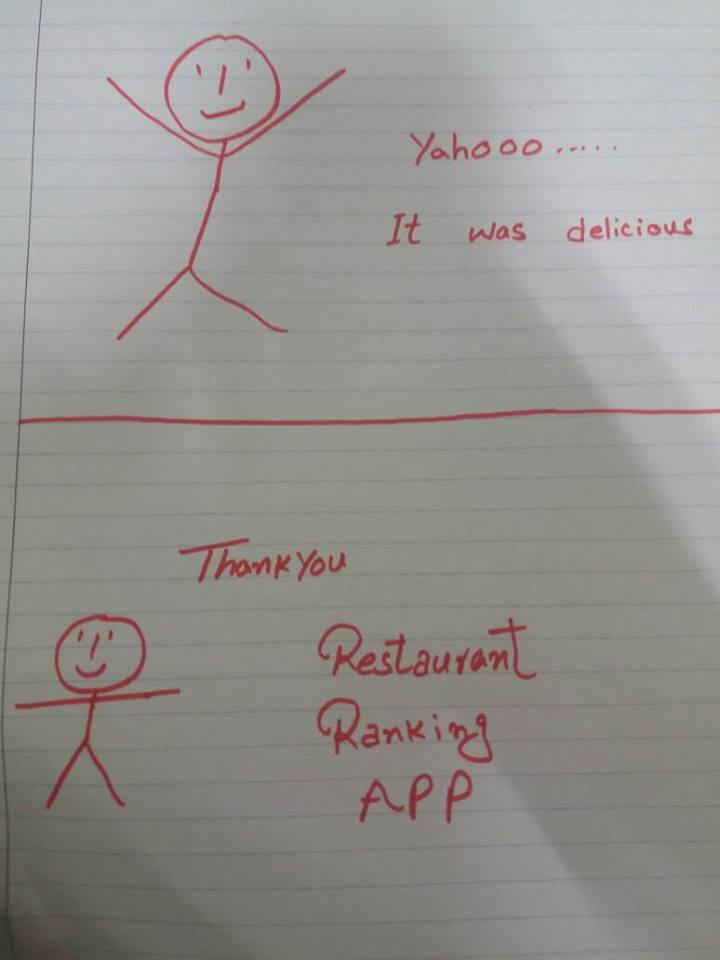 Yahooo.....
It was delicious
Thankyou
Restaurant
Ranking
APP